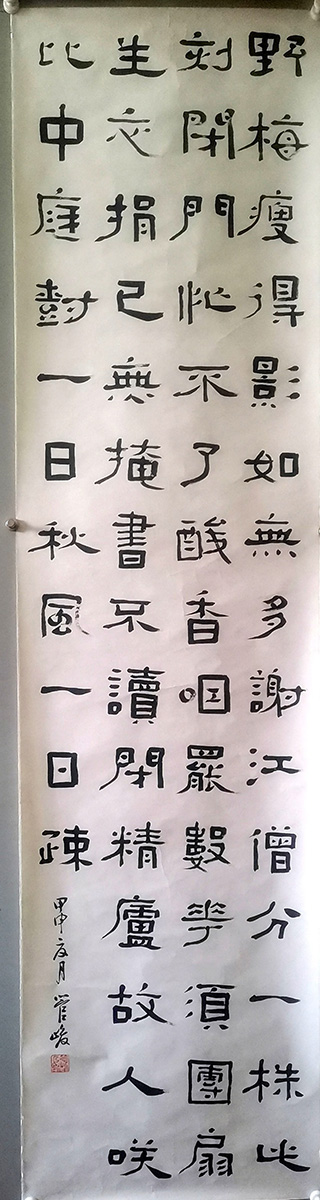 野梅瘦得影如無多謝江僧分一株此
刻閉門忙不了酸香咽罷數華須團扇
生衣捐已無掩書不讀閉精廬故人咲
比中庭尌一日秋風一日疎
甲申夏月 管峻